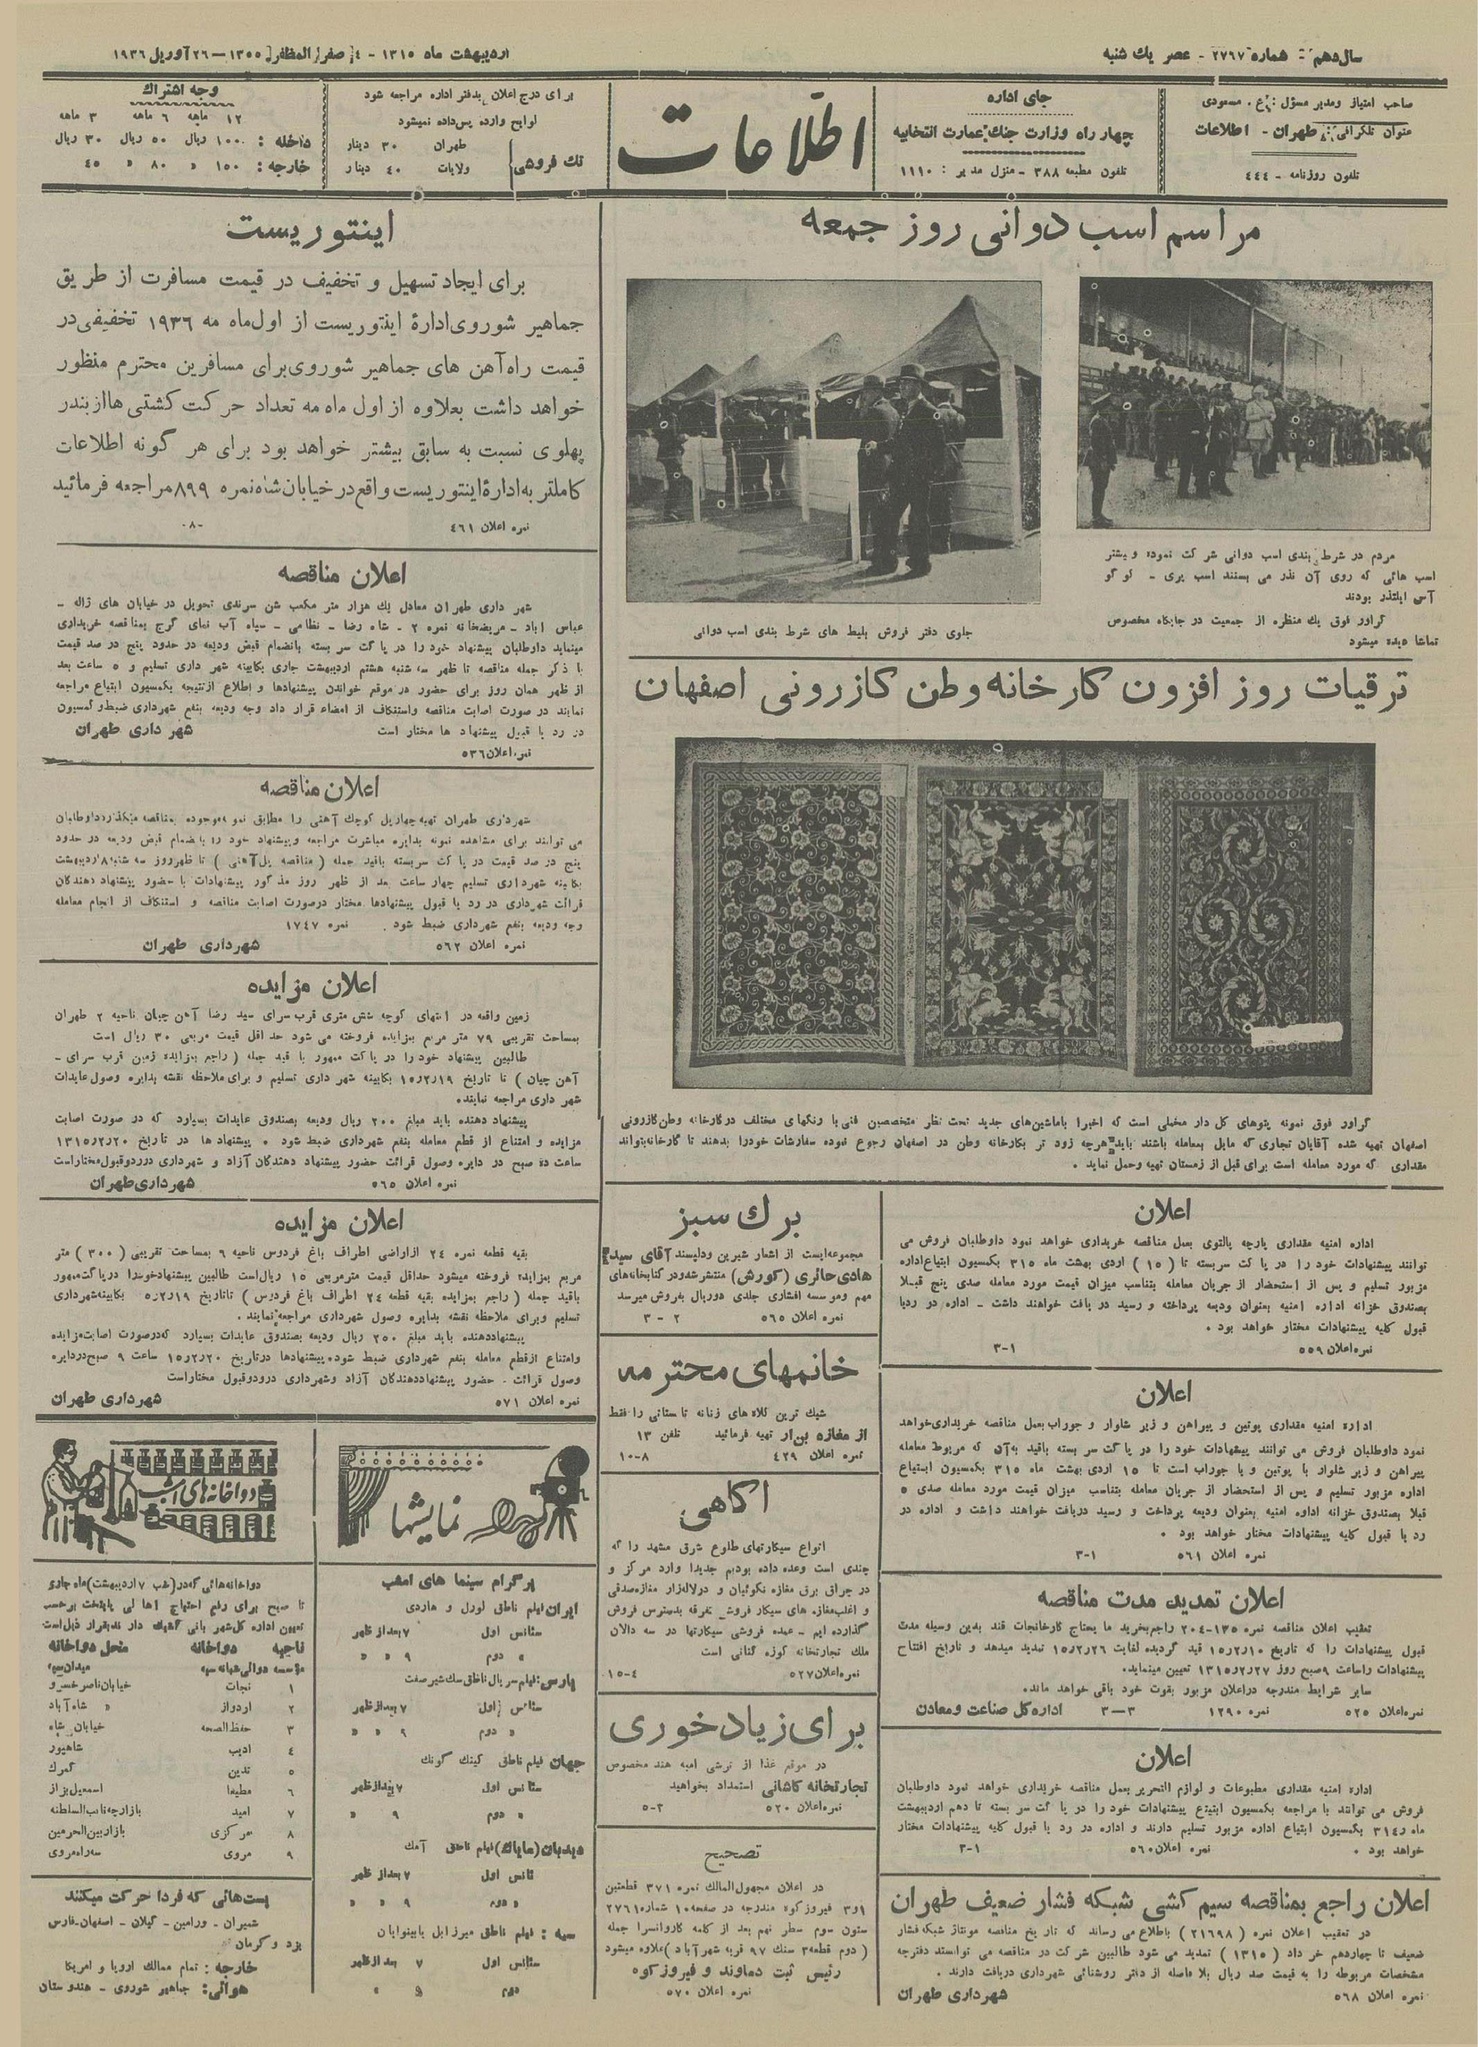 سال دهم - شماره ۲۷۶۷ - عصر یك شنبه
اردیبهشت ماه ۱۳۱۵ - ٤ صفر المظفر ۱۳۵۵ – ۲٦ آوریل ۱۹۳٦
صاحب امتیاز ومدیر مسؤل : ع. مسعودی
عنوان تلگرافی: طهران - اطلاعات
تلفون روزنامه - ٤٤٤
جای اداره
چهار راه وزارت جنك عمارت انتخابیه
تلفون مطبعه ۳۸۸ - منزل مدیر : ۱۱۱۰
اطلاعات
برای درج اعلان بدفتر اداره مراجعه شود
لوایح وارده پس‌داده نمیشود
تك فروشی
طهران ۳۰ دینار
ولایات ٤۰ دینار
وجه اشتراك
۱۲ ماهه ٦ ماهه ۳ ماهه
داخله : ۱۰۰ ریال ۵۰ ریال ۳۰ ریال
خارجه : ۱۵۰ « ۸۰ « ٤۵
مراسم اسب دوانی روز جمعه
مردم در شرط بندی اسب دوانی شرکت نموده و بیشتر
اسب هائی که روی آن نذر می بستند اسب پری - لوگو
آسی ایلتذر بودند
گراور فوق یك منظره از جمعیت در جایگاه مخصوص
تماشا دیده میشود
جلوی دفتر فروش بلیط های شرط بندی اسب دوانی
ترقیات روز افزون کارخانه وطن کازرونی اصفهان
گراور فوق نمونه پتوهای گل دار مخملی است که اخیرا باماشین‌های جدید تحت نظر متخصصین فنی با رنگهای مختلف درکارخانه وطن کازرونی
اصفهان تهیه شده آقایان تجاری که مایل بمعامله باشند باید هرچه زود تر بکارخانه وطن در اصفهان رجوع نموده سفارشات خودرا بدهند تا کارخانه بتواند
مقداری که مورد معامله است برای قبل از زمستان تهیه وحمل نماید .
اعلان
اداره امنیه مقداری پارچه پالتوی بعمل مناقصه خریداری خواهد نمود داوطلبان فروش می
توانند پیشنهادات خود را در پاکت سر بسته تا (۱۵) اردی بهشت ماه ۳۱۵ بکمسیون ابتیاع‌اداره
مزبور تسلیم و پس از استحضار از جریان معامله بتناسب میزان قیمت مورد معامله صدی پنج قبلا
بصندوق خزانه اداره امنیه بعنوان ودیعه پرداخته و رسید دریافت خواهند داشت - اداره در ردیا
قبول کلیه پیشنهادات مختار خواهد بود .
نمره‌اعلان ۵۵۹ ۱-۳
اعلان
اداره امنیه مقداری پوتین و پیراهن و زیر شلوار و جوراب بعمل مناقصه خریداری‌خواهد
نمود داوطلبان فروش می توانند پیشنهادات خود را در پاکت سر بسته باقید به آن که مربوط معامله
پیراهن و زیر شلوار یا پوتین و یا جوراب است تا ۱۵ اردی بهشت ماه ۳۱۵ بکمسیون ابتیاع
اداره مزبور تسلیم و پس از استحضار از جریان معامله بتناسب میزان قیمت مورد معامله صدی ۵
قبلا بصندوق خزانه اداره امنیه بعنوان ودیعه پرداخت و رسید دریافت خواهند داشت و اداره در
رد یا قبول کلیه پیشنهادات مختار خواهد بود .
نمره اعلان ۵٦۱ ۱-۳
اعلان تمدید مدت مناقصه
تعقیب اعلان مناقصه نمره ۱۳۵-۲۰٤ راجع‌بخرید ما یحتاج کارخانجات قند بدین وسیله مدت
قبول پیشنهادات را که تاریخ ۱۵/۲/۱۰ قید گردیده لغایت ۱۵/۲/۲٦ تمدید میدهد و تاریخ افتتاح
پیشنهادات راساعت ۹صبح روز ۱۳۱۵/۲/۲۷ تعیین مینماید.
سایر شرایط مندرجه دراعلان مزبور بقوت خود باقی خواهد ماند.
نمره‌اعلان ۵۲۵ نمره ۱۲۹۰ ۳-۳ اداره کل صناعت و معادن
اعلان
اداره امنیه مقداری مطبوعات و لوازم التحریر بعمل مناقصه خریداری خواهد نمود داوطلبان
فروش می توانند با مراجعه بکمسیون ابتیاع پیشنهادات خود را در پاکت سر بسته تا دهم اردیبهشت
ماه ۳۱٤ بکمسیون ابتیاع اداره مزبور تسلیم دارند و اداره در رد یا قبول کلیه پیشنهادات مختار
خواهد بود . نمره اعلان ۵٦۰ ۱-۳
اعلان راجع بمناقصه سیم کشی شبکه فشار ضعیف طهران
در تعقیب اعلان نمره (۲۱٦۹۸) باطلاع می رساند که تاریخ مناقصه مونتاژ شبکه فشار
ضعیف تا چهاردهم خرداد (۱۳۱۵) تمدید می شود طالبین شرکت در مناقصه می توانند دفترچه
مشخصات مربوطه را به قیمت صد ریال بلا فاصله از دائر روشنائی شهرداری دریافت دارند .
نمره اعلان ۵٦۸ شهرداری طهران
برك سبز
مجموعه‌ایست از اشعار شیرین ودلپسند آقای سید
هادی حائری (کورش) منتشر شددر کتابخانه‌های
مهم وموسسه افشاری جلدی دوریال بفروش میرسد
نمره اعلان ۵٦۵ ۲-۳
خانمهای محترمه
شیك ترین کلاه های زنانه تابستانی را فقط
از مغازه بن‌ار تهیه فرمائید تلفن ۱۳
نمره اعلان ٤۲۹ ۸-۱۰
آگاهی
انواع سیگارتهای طلوع شرق مشهد را که
چندی است وعده داده بودیم جدیدا وارد مرکز و
در چراق برق مغازه نگوئیان و درلاله‌زار مغازه‌صدقی
و اغلب‌مغازه های سیگار فروش متفرقه بدسترس فروش
گذارده ایم - عمده فروشی سیگارتها در سه دالان
ملك تجارتخانه کوزه کنانی است
نمره‌اعلان ۵۲۷ ٤-۱۵
برای زیاد خوری
در موقع غذا از ترشی امبه هند مخصوص
تجارتخانه کاشانی استمداد بخواهید
نمره‌اعلان ۵۲۰ ۳-۵
تصحیح
در اعلان مجهول‌المالك نمره ۳۷۱ قطعتین
۱و۳ فیروزکوه مندرجه در صفحه۱۰ شماره ۲۷٦۱
ستون سوم سطر نهم بعد از کلمه کاروانسرا جمله
(دوم قطعه۳ سنك ۹۷ قریه شهر آباد) علاوه میشود
رئیس ثبت دماوند و فیروزکوه
نمره اعلان ۵۷۰
اینتوریست
برای ایجاد تسهیل و تخفیف در قیمت مسافرت از طریق
جماهیر شوروی ادارهٔ اینتوریست از اول ماه مه ۱۹۳٦ تخفیفی در
قیمت راه آهن های جماهیر شوروی برای مسافرین محترم منظور
خواهد داشت بعلاوه از اول ماه مه تعداد حرکت کشتی ها از بندر
پهلوی نسبت به سابق بیشتر خواهد بود برای هر گونه اطلاعات
کاملتر به ادارهٔ اینتوریست واقع در خیابان شاه نمره ۸۹۹ مراجعه فرمائید
نمره اعلان ٤٦۱ -۸-
اعلان مناقصه
شهر داری طهران معادل یك هزار متر مکعب شن سرندی تحویل در خیابان های ژاله -
عباس آباد - مریضخانه نمره ۲ - شاه رضا - نظامی - سیاه آب نمای گرج بمناقصه خریداری
مینماید داوطلبان پیشنهاد خود را در پاکت سر بسته بانضمام قبض ودیعه در حدود پنج در صد قیمت
با ذکر جمله مناقصه تا ظهر سه شنبه هشتم اردیبهشت جاری بکابینه شهر داری تسلیم و ۵ ساعت بعد
از ظهر همان روز برای حضور در موقع خواندن پیشنهادها و اطلاع ازنتیجه بکمسیون ابتیاع مراجعه
نمایند در صورت اصابت مناقصه واستنکاف از امضاء قرار داد وجه ودیعه بنفع شهرداری ضبط‌و کمسیون
در رد یا قبول پیشنهاد ها مختار است شهر داری طهران
نمره اعلان ۵۳٦
اعلان مناقصه
شهرداری طهران تهیه چهارپل کوچك آهنی را مطابق نمونه‌موجوده بمناقصه میگذارد داوطلبان
می توانند برای مشاهده نمونه بدایره مباشرت مراجعه وپیشنهاد خود را بانضمام قبض ودیعه در حدود
پنج در صد قیمت در پاکت سربسته باقید جمله (مناقصه پل آهنی) تا ظهرروز سه شنبه۸ اردیبهشت
بکابینه شهرداری تسلیم چهار ساعت بعد از ظهر روز مذکور پیشنهادات با حضور پیشنهاد دهندگان
قرائت شهرداری در رد یا قبول پیشنهادها مختار درصورت اصابت مناقصه و استنکاف از انجام معامله
وجه ودیعه بنفع شهرداری ضبط شود . نمره ۱۷٤۷
نمره اعلان ۵٦۲ شهرداری طهران
اعلان مزایده
زمین واقعه در انتهای کوچه شش متری قرب سرای سید رضا آهن چیان ناحیه ۲ طهران
بمساحت تقریبی ۷۹ متر مربع بمزایده فروخته می شود حداقل قیمت مربعی ۳۰ ریال است
طالبین پیشنهاد خود را در پاکت ممهور با قید جمله (راجع بمزایده زمین قرب سرای -
آهن چیان) تا تاریخ ۱۵/۲/۱۹ بکابینه شهر داری تسلیم و برای ملاحظه نقشه بدایره وصول عایدات
شهر داری مراجعه نمایند.
پیشنهاد دهنده باید مبلغ ۲۰۰ ریال ودیعه بصندوق عایدات بسپارد که در صورت اصابت
مزایده و امتناع از قطع معامله بنفع شهرداری ضبط شود . پیشنهاد ها در تاریخ ۱۳۱۵/۲/۲۰
ساعت ده صبح در دایره وصول قرائت حضور پیشنهاد دهندگان آزاد و شهرداری دررد‌و‌قبول‌مختار‌است
نمره اعلان ۵٦۵ شهرداری طهران
اعلان مزایده
بقیه قطعه نمره ۲٤ ازاراضی اطراف باغ فردوس ناحیه ٦ بمساحت تقریبی (۳۰۰) متر
مربع بمزایده فروخته میشود حداقل قیمت مترمربعی ۱۵ ریال‌است طالبین پیشنهادخودرا درپاکت‌ممهور
باقید جمله (راجع بمزایده بقیه قطعه ۲٤ اطراف باغ فردوس) تاتاریخ ۱۵/۲/۱۹ بکابینه‌شهرداری
تسلیم وبرای ملاحظه نقشه بدایره وصول شهرداری مراجعه نمایند.
پیشنهاددهنده باید مبلغ ۲۵۰ ریال ودیعه بصندوق عایدات بسپارد که‌درصورت اصابت‌مزایده
وامتناع ازقطع معامله بنفع شهرداری ضبط شود. پیشنهادها درتاریخ ۱۵/۲/۲۰ ساعت ۹ صبح‌دردایره
وصول قرائت . حضور پیشنهاددهندگان آزاد وشهرداری دررد‌وقبول مختاراست
نمره اعلان ۵۷۱ شهرداری طهران
نمایشها
پرگرام سینما های امشب
ایران فیلم ناطق لورل و هاردی
سئانس اول ۷ بعد از ظهر
« دوم ۹ « «
پارس: فیلم سریال ناطق سك شیر صفت
سئانس اول ۷ بعدازظهر
« دوم ۹ « «
جهان فیلم ناطق کینك کونك
سئانس اول ۷ بعدازظهر
« دوم ۹ «
دیدبان (مایاك) فیلم ناطق آمك
سئانس اول ۷ بعداز ظهر
« دوم ۹ « «
سپه : فیلم ناطق میرزابل بایینوایان
سئانس اول ۷ بعد از ظهر
دوم ۹ «
دواخانه‌های امشب
دواخانه‌هائی که‌در(شب ۷اردیبهشت)ماه جاری
تا صبح برای رفع احتیاج اهالی پایتخت برحسب
تعیین اداره کل‌صحیه بانی کشیك دار ندبقرار ذیل‌است
ناحیه دواخانه محل دواخانه
مؤسسه دوائی‌شبانه سپه میدان‌سپه
۱ نجات خیابان‌ناصرخسرو
۲ اردواز « شاه‌آباد
۳ حفظ‌الصحه خیابان شاه
٤ ادیب شاهپور
۵ تدین گمرك
٦ مطیعا اسمعیل‌بزاز
۷ امید بازارچه‌نایب‌السلطنه
۸ مرکزی بازاربین‌الحرمین
۹ مروی سه‌راه‌مروی
پست‌هائی که فردا حرکت میکنند
شمیران - ورامین - گیلان - اصفهان-فارس
یزد و کرمان
خارجه : تمام ممالك اروپا و امریکا
هوائی: جماهیر شوروی - هندوستان